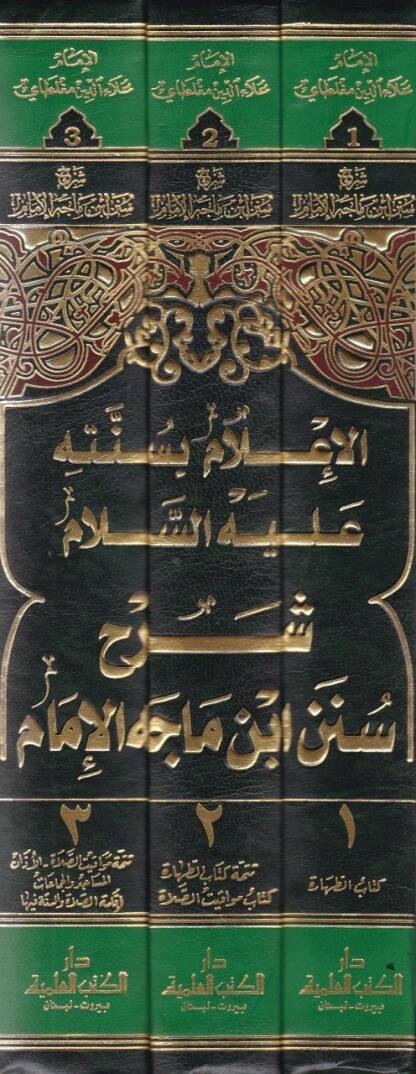 الإمام
علاء الدين مغلطاي
1
شرح
سنن ابن ماجه الإمام
الإمام
علاء الدين مغلطاي
2
شرح
سنن ابن ماجه الإمام
الإمام
علاء الدين مغلطاي
3
شرح
سنن ابن ماجه الإمام
الإعلام بسنَّته
عليْه السَّلام
شَرْح
سُنَن ابْن مَاجَه الإِمَام
١
كتاب الطهارة
دار
الكتب العلمية
بيروت - لبنان
٢
تتمة كتاب الطهارة
كتاب مواقيت الصلاة
دار
الكتب العلمية
بيروت - لبنان
٣
تتمة مواقيت الصلاة - الأذان
المساجد والجماعات
إقامة الصلاة والسنة فيها
دار
الكتب العلمية
بيروت - لبنان